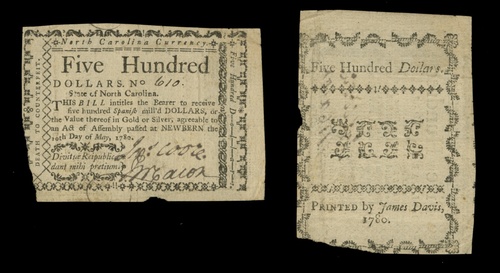 North Carolina Currency.
Five Hundred
DOLLARS. No 610.
State of North Carolina.
THIS BILL intitles the Bearer to receive
five hundred Spanish mill'd DOLLARS, or
the Value thereof in Gold or Silver, agreeable to
an Act of Assembly passed at NEWBERN the
Day of May, 1780.
mihi pretium
Macon
DEATH TO COUNTERFEIT.
Five Hundred
Five Hundred Dollars.
PRINTED by James Davis,
1780.